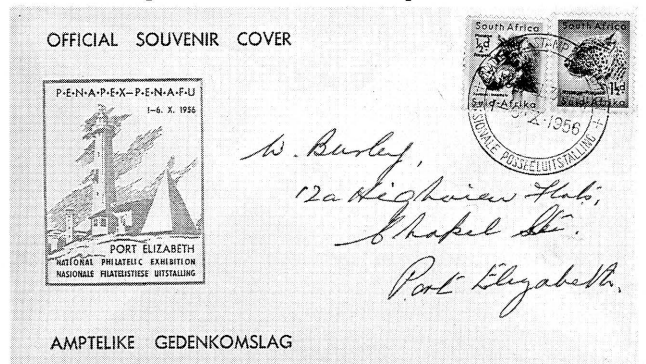 OFFICIAL SOUVENIR COVER
P·E·N·A·P·E·X–P·E·N·A·F·U
1–6. X. 1956
PORT ELIZABETH
NATIONAL PHILATELIC EXHIBITION
NASIONALE FILATELISTIESE UITSTALLING
AMPTELIKE GEDENKOMSLAG
South Africa
½d
Suid-Afrika
South Africa
1½d
Suid-Afrika
STAMP
X·1956
SIONALE POSSEËLUITSTALLING
W. Burley,
12a Highview Flats,
Chapel St.
Port Elizabeth.